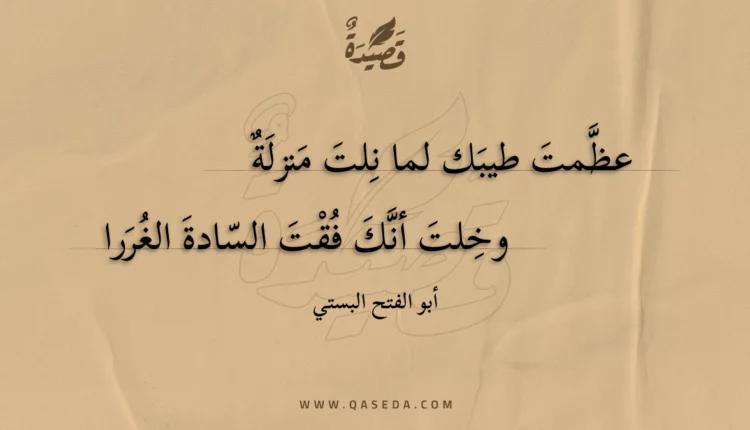 قَصِيْدَةٌ
عظَّمتَ طيبَك لما نِلتَ مَنزلَةٌ
وخِلتَ أنَّكَ فُقْتَ السّادةَ الغُرَرا
أبو الفتح البستي
WWW.QASEDA.COM